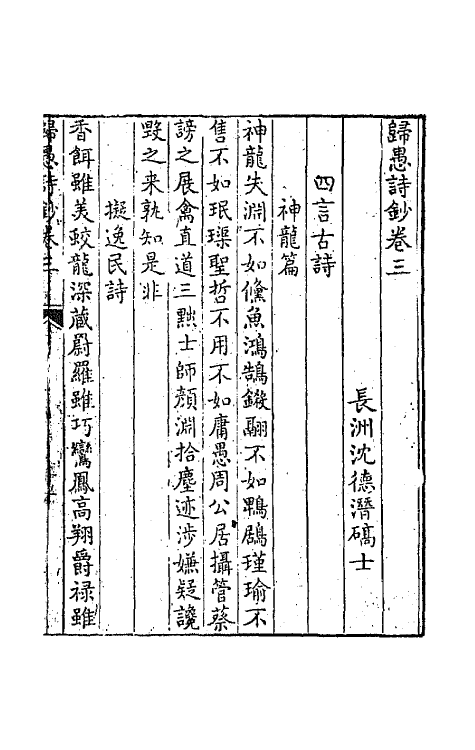 歸愚詩鈔卷三
長洲沈德潛碻士
四言古詩
神龍篇
神龍失淵不如儵魚鴻鵠鎩翮不如鴨鶋瑾瑜不
售不如珉璖聖哲不用不如庸愚周公居攝管蔡
謗之展禽直道三黜士師顏淵拾塵迹涉嫌疑讒
毀之來孰知是非
擬逸民詩
香餌雖美蛟龍深藏罻羅雖巧鸞鳳高翔爵祿雖
歸愚詩鈔卷三